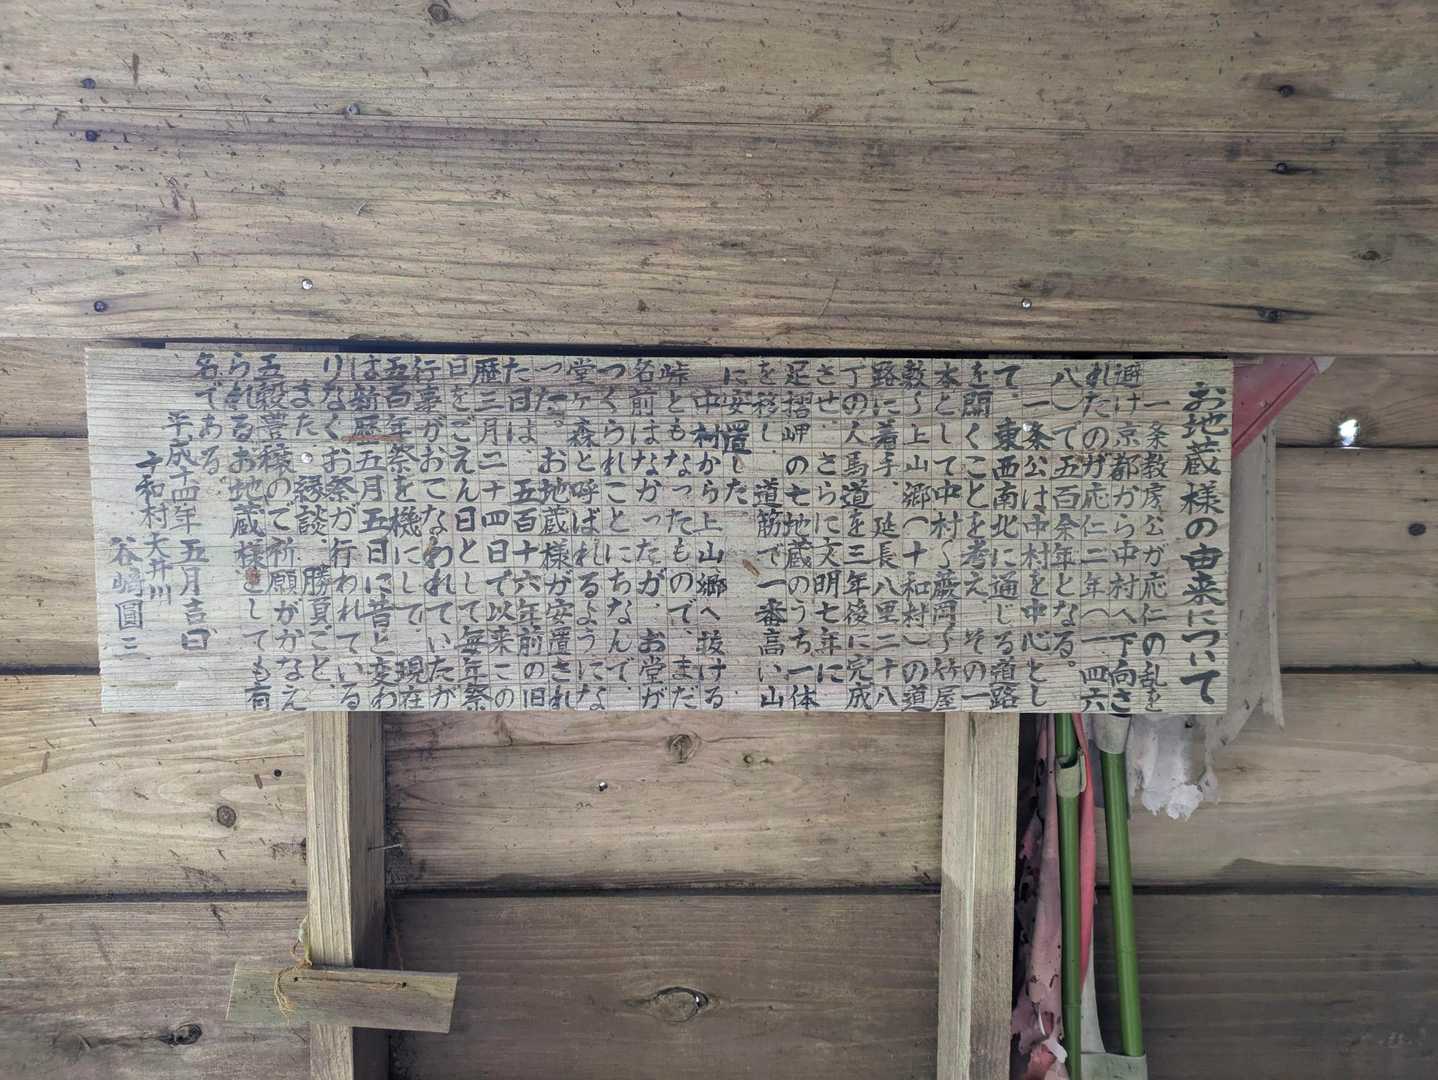 お地蔵様の由来について
一条教房公が応仁の乱を
避け京都から中村へ下向さ
れたのが応仁二年(一、四六
八)で五百余年となる。
一条公は中村を中心とし
て、東西南北に通じる道路
を開くことを考え、その一
本として中村〜蕨岡〜竹屋
敷〜上山郷(十和村)の道
路に着手、延長八里二十八
丁の人馬道を三年後に完成
させ、さらに文明七年に
足摺岬の七地蔵のうち一体
を移し、道筋で一番高い山
に安置した
中村から上山郷へ抜ける
峠ともなったもので、まだ
名前はなかったが、お堂が
つくられことにちなんで、
堂ヶ森と呼ばれるようにな
った。お地蔵様が安置され
た日は、五百十六年前の旧
歴三月二十四日で以来この
日をごえん日として毎年祭
行事がおこなわれていたが
五百年祭を機にして、現在
は新歴五月五日に昔と変わ
りなくお祭が行われている
また。縁談、勝負ごと、
五穀豊穣ので祈願がかなえ
られるお地蔵様としても有
名である。
平成十四年 五月吉日
十和村大井川
谷崎圓三